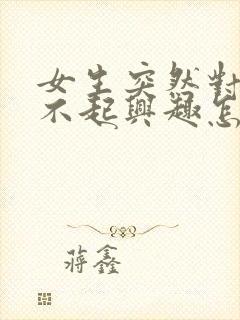 女生突然對
不起興趣怎
蔣鑫